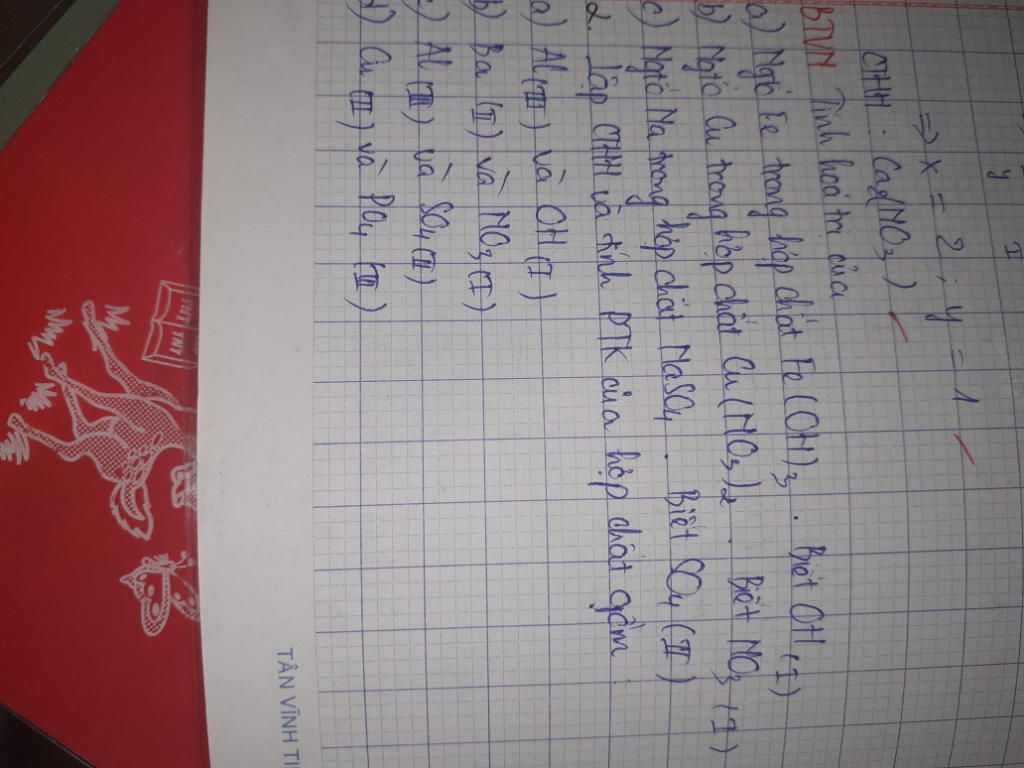 y I
=> x = 2 ; y = 1
CTHH : Ca2(NO3)
BTVN Tính hoá trị của
a) Ngtố Fe trong hợp chất Fe(OH)3 . Biết OH (I)
b) Ngtố Cu trong hợp chất Cu(NO3)2 . Biết NO3 (I)
c) Ngtố Na trong hợp chất NaSO4 . Biết SO4 (II)
2. Lập CTHH và tính PTK của hợp chất gồm :
a) Al (III) và OH (I)
b) Ba (II) và NO3 (I)
c) Al (III) và SO4 (II)
d) Cu (II) và PO4 (III)
TÂN VĨNH TI